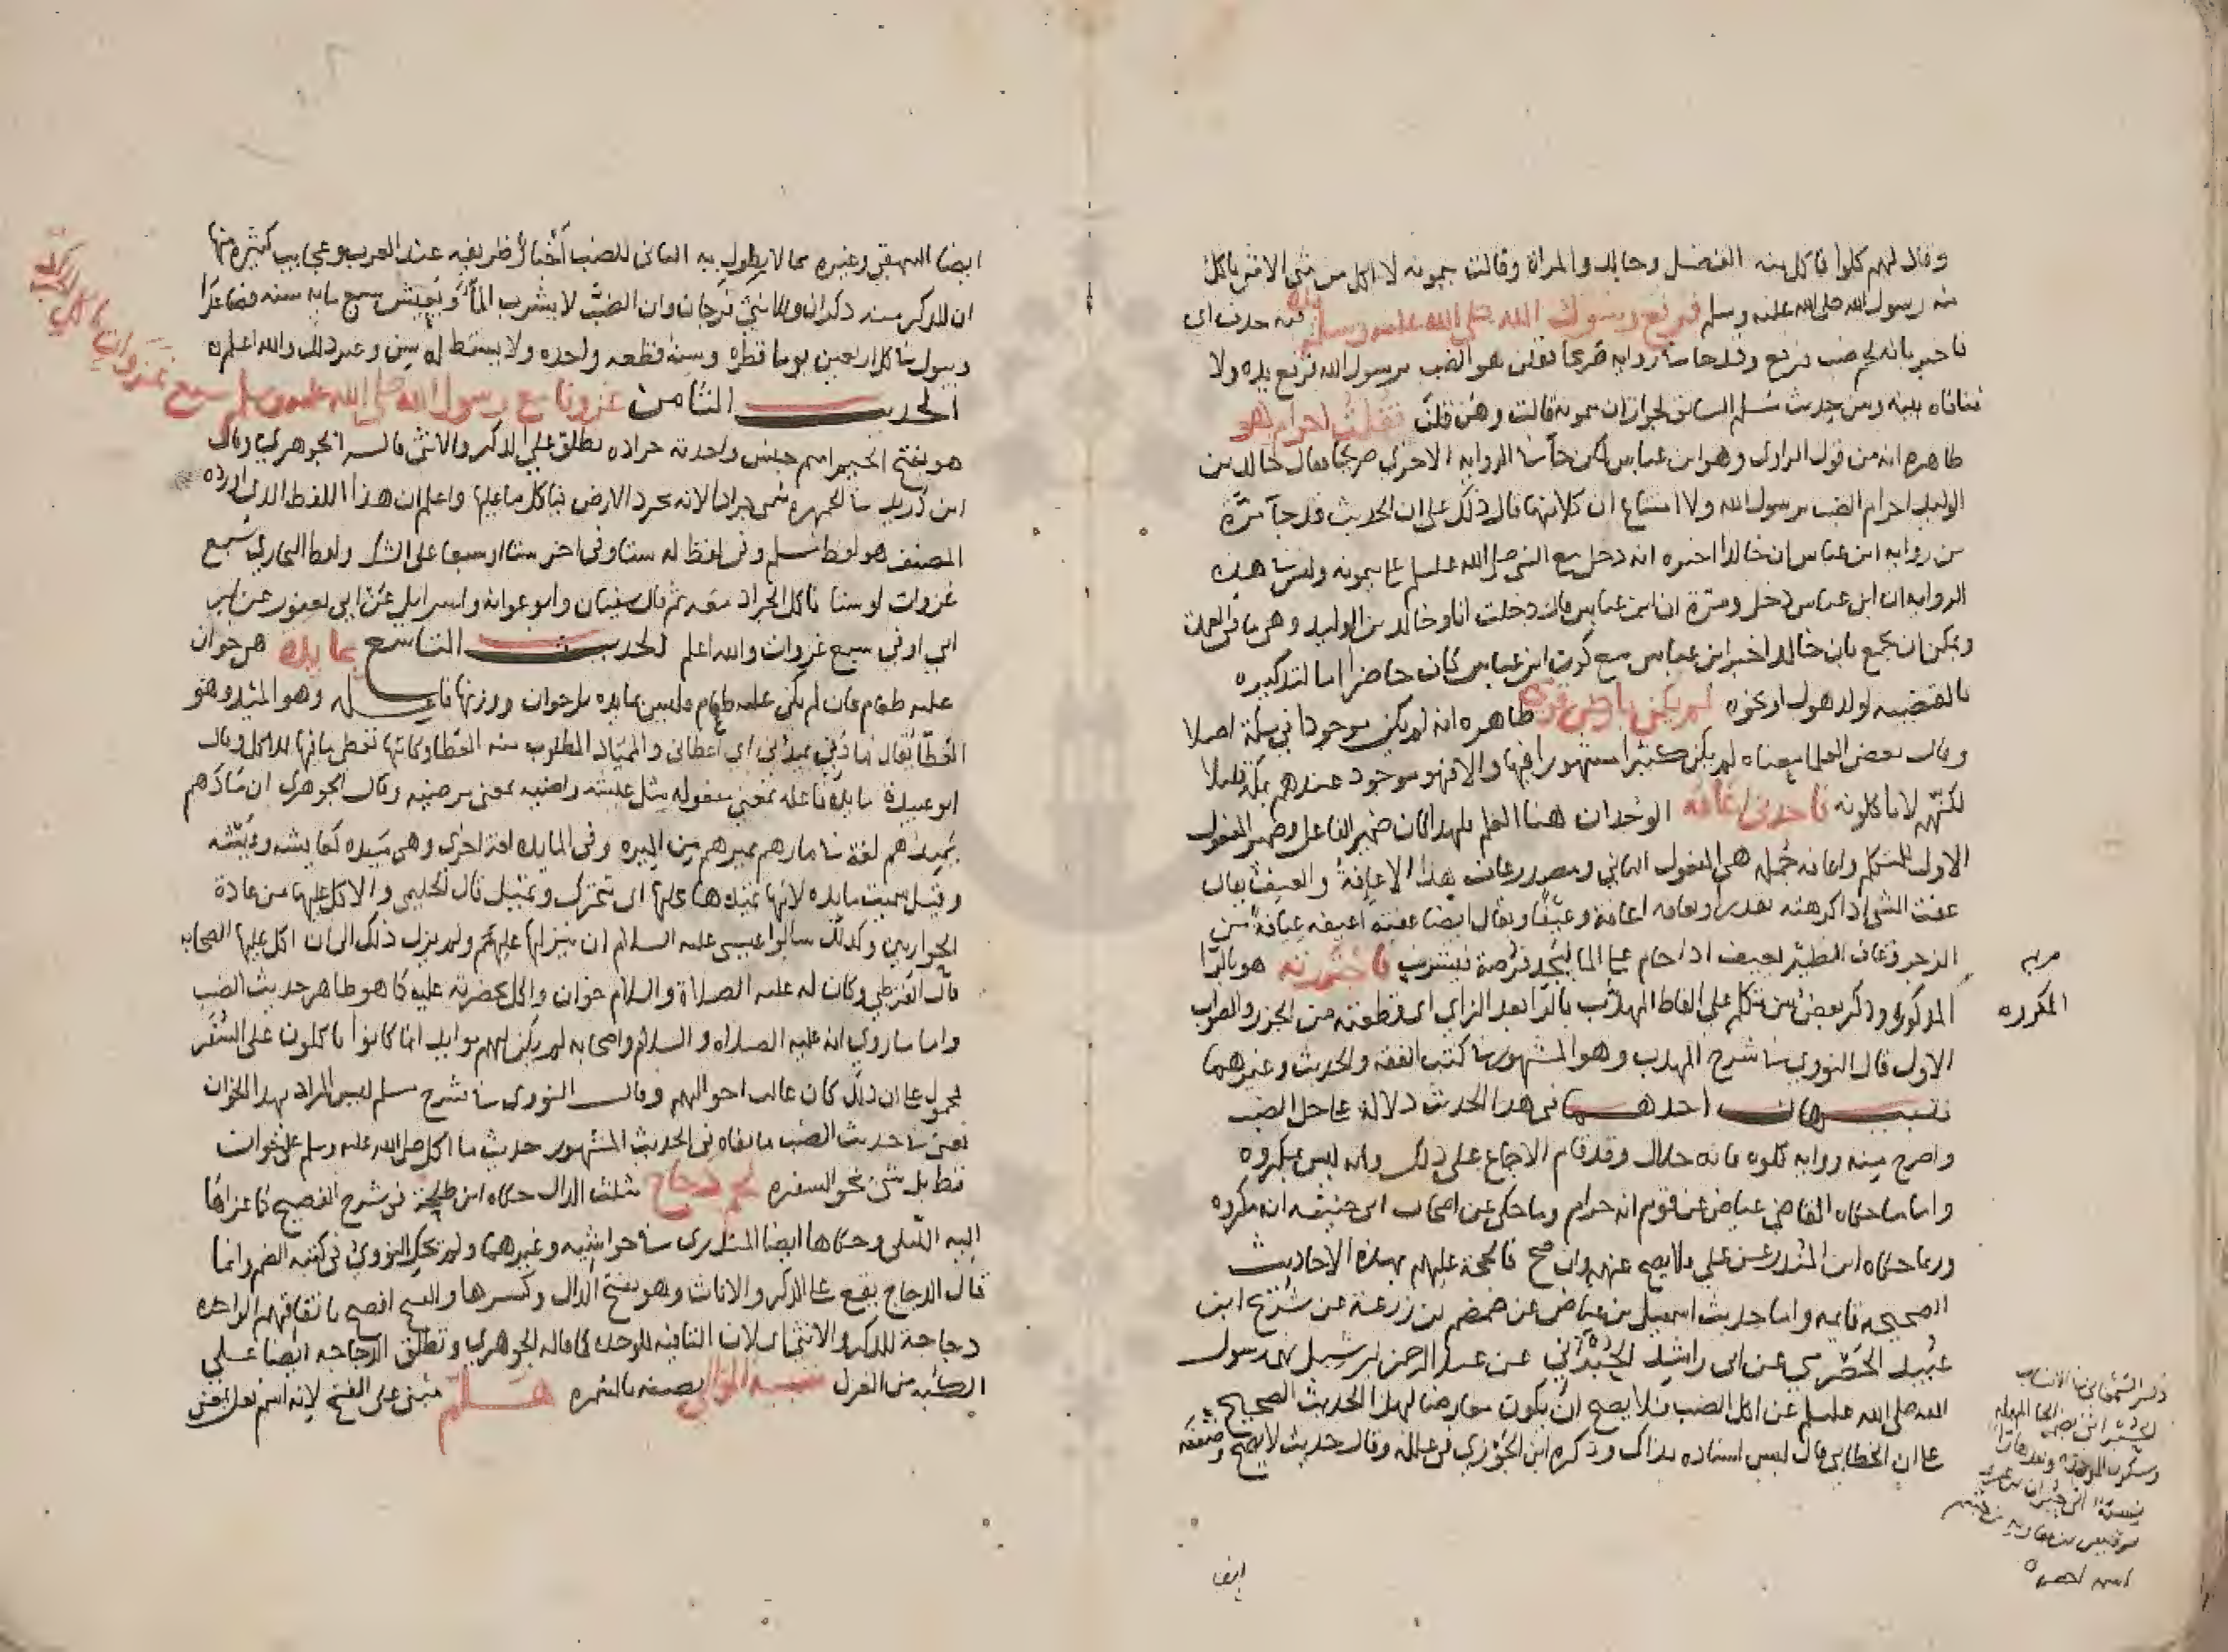 وقال لهم كلوا فاكل منه الفضل وخالد والمراة وقالت ميمونة لا اكل من شي الا شي ياكل
منه رسول الله صلى الله عليه وسلم فرفع رسول الله صلى الله عليه وسلم يده فيه حذف اي
فاخبر بانه لحم ضب فرفع وقد جا في رواية صريحا فقلن هو الضب يرسول الله فرفع يده ولا
منافاه بينه وبين حديث مسلم السابق لجواز ان ميمونة قالت وهن قلن فقلت احرام هو
ظاهره انه من قول الراوي وهو ابن عباس لكن جا في الرواية الاخرى صريحا فقال خالد بن
الوليد احرام الضب يرسول الله ولا امتناع ان كلاهما قال ذلك على ان الحديث قد جا مرة
من رواية ابن عباس ان خالدا اخبره انه دخل مع النبي صلى الله عليه وسلم على ميمونة وليس في هذه
الرواية ان ابن عباس دخل ومرة ان ابن عباس قال دخلت انا وخالد بن الوليد وهي ما في العمدة
ويمكن ان يجمع بان خالدا اخبر ابن عباس مع كون ابن عباس كان حاضرا اما لتذكيره
بالقضية او لذهول او نحوه لم يكن بارض قومي ظاهره انه لم يكن موجودا في مكة اصلا
وقال بعض العلما معناه لم يكن كثيرا مشهورا فيها والا فهو موجود عندهم بمكة قليلا
لكنهم لا ياكلونه فاجدني اعافه الوجدان هنا العلم فلهذا كان ضمير الفاعل وضمير المفعول
الاول للمتكلم واعافه جملة هي المفعول الثاني ومصدر عاف هذا الاعافة والعيف يقال
عفت الشي اذا كرهته تقذرا وتعافه اعافة وعيفا ويقال ايضا عفته اعيفه عيافة من
الزجر وعاف الطير يعيف اذا حام على الما ليجد فرصة فيشرب فاجتررته هو بالرا
المذكوره وذكر بعض من تكلم على الفاظ المهذب بالرا بعد الزاي اي قطعته من الجزر والصواب
الاول قال النووي في شرح المهذب وهو المشهور في كتب الفقه والحديث وغيرهما
تنبيهات احدها في هذا الحديث دلالة على حل الضب
واصرح منه رواية كلوه فانه حلال وقد قام الاجماع على ذلك وانه ليس بمكروه
واما ما حكاه القاضي عياض عن قوم انه حرام وما حكي عن اصحاب ابي حنيفه انه مكروه
وربما حكاه ابن المنذر عن علي فلا يصح عنهم وان صح فالحجة عليهم بهذه الاحاديث
الصحيحه قايمه واما حديث اسمعيل بن عياش عن ضمضم بن زرعة عن شريح ابن
عبيد الحضرمي عن ابي راشد الحبراني عن عبد الرحمن بن شبل نهى رسول
الله صلى الله عليه وسلم عن اكل الضب فلا يصح ان يكون معارضا لهذا الحديث الصحيح
على ان الخطابي قال ليس اسناده بذاك وذكره ابن الجوزي في علله وقال حديث لا يصح وضعفه
المكرره
ايضا
ايضا البيهقي وغيره مما لا يطول به الثاني للضب اخبار ظريفه عند العرب وعجايب كثيره منها
ان للذكر منه ذكران وللانثى فرجان وان الضب لا يشرب الما ويعيش سبع مايه سنه فصاعدا
ويبول في كل اربعين يوما قطره وسنه قطعه واحده ولا يسقط له سن وغير ذلك والله اعلم
الحديث الثامن غزونا مع رسول الله صلى الله عليه وسلم سبع غزوات ناكل الجراد
هو بفتح الجيم اسم جنس واحدته جراده يطلق على الذكر والانثى قاله الجوهري وقال
ابن دريد في الجمهره سمي جرادا لانه يجرد الارض فياكل ما عليها واعلم ان هذا اللفظ الذي اورده
المصنف هو لفظ مسلم وفي لفظ له ستا وفي اخر ستا او سبعا على الشك ولفظ البخاري سبع
غزوات او ستا ناكل الجراد معه ثم قال سفيان وابو عوانه واسرايل عن ابي يعفور عن ابن
ابي اوفى سبع غزوات والله اعلم الحديث التاسع بمايده هي خوان
عليه طعام فان لم يكن عليه طعام فليس بمايده بل خوان ووزنها فاعله وهو الميد وهو
العطا يقال مادني يميدني اي اعطاني والممتاد المطلوب منه العطا وكانها تعطي ما فيها للاكل وقال
ابو عبيدة مايده فاعله بمعنى مفعوله مثل عيشه راضيه بمعنى مرضيه وقال الجوهري ان مادهم
يميدهم لغة في مارهم يميرهم من الميره وفي المايده لغة اخرى وهي ميده كعايشه وعيشه
وقيل سميت مايده لانها تميد بما عليها اي تتحرك وتميل قال الحليمي والاكل عليها من عادة
الحواريين وكذلك سالوا عيسى عليه السلام ان ينزلها عليهم ولم يزل ذلك الى ان اكل عليها الصحابه
قال القرطبي وكان له عليه الصلاة والسلام خوان واكل بحضرته عليه كما هو ظاهر حديث الضب
واما ما روي انه عليه الصلاه والسلام واصحابه لم يكن لهم موايد انما كانوا ياكلون على السفر
فمحمول على ان ذلك كان غالب احوالهم وقال النووي في شرح مسلم ليس المراد بهذا الخوان
يعني في حديث الضب ما نفاه في الحديث المشهور حديث ما اكل صلى الله عليه وسلم على خوان
قط بل شي نحو السفره لحم دجاج مثلث الدال حكاه ابن طلحة في شرح الفصيح كما عزاها
اليه اللبلي وحكاها ايضا المنذري في حواشيه وغيرهما ولم يحك النووي في كتبه الضم وانما
قال الدجاج يقع على الذكر والاناث وهو بفتح الدال وكسرها والفتح افصح باتفاقهم الواحده
دجاجة للذكر والانثى لان التا فيه للوحده كما قاله الجوهري وتطلق الدجاجه ايضا على
الكبه من الغزل شبيه الموالي بصفته بالحمره هلم مبني على الفتح لانه اسم فعل بمعنى